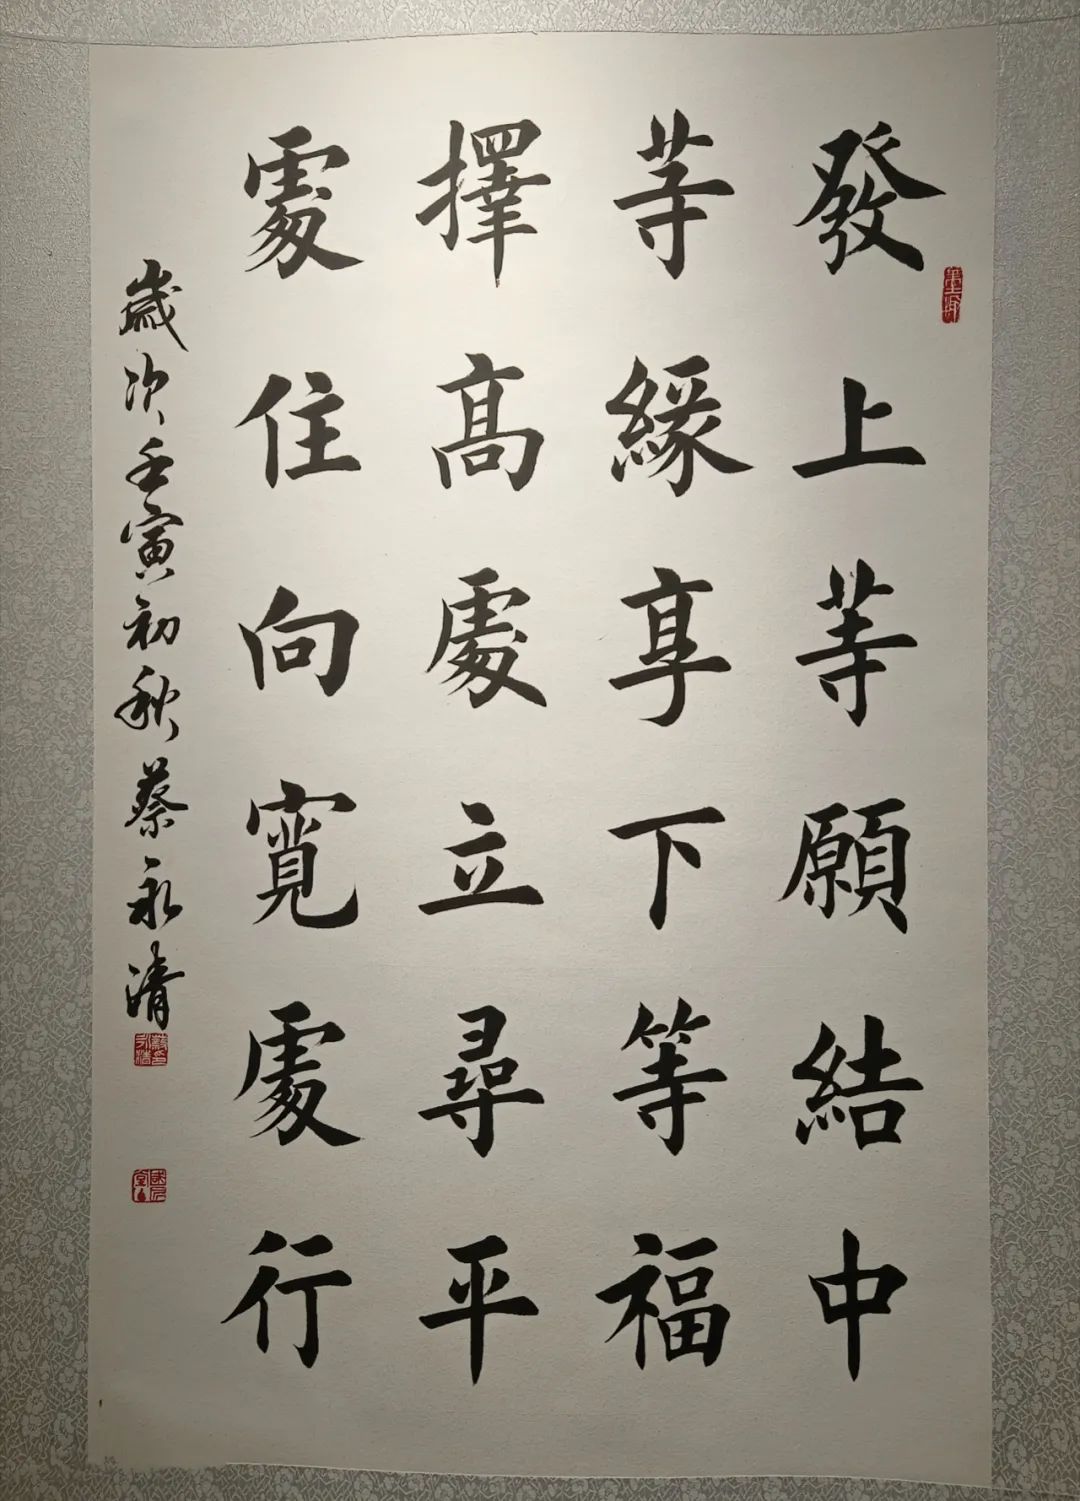 發上等願結中
等緣享下等福
擇高處立尋平
處住向寬處行
歲次壬寅初秋蔡永清